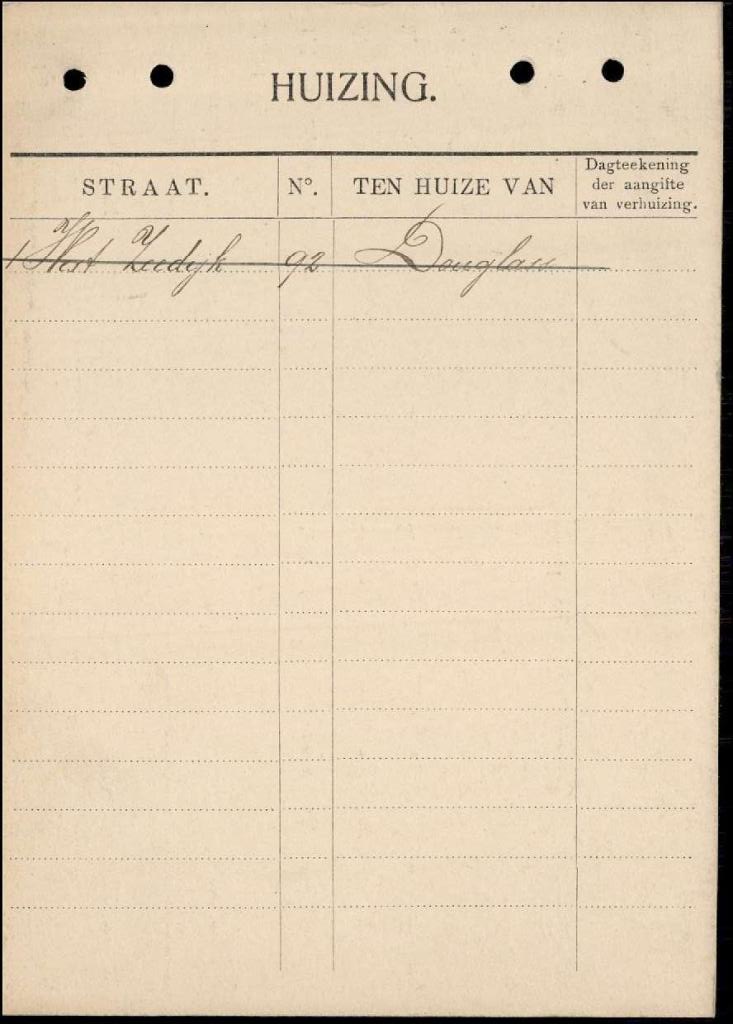 HUIZING.
STRAAT. N°. TEN HUIZE VAN Dagteekening der aangifte van verhuizing.
1 West Zeedijk 92 Douglass